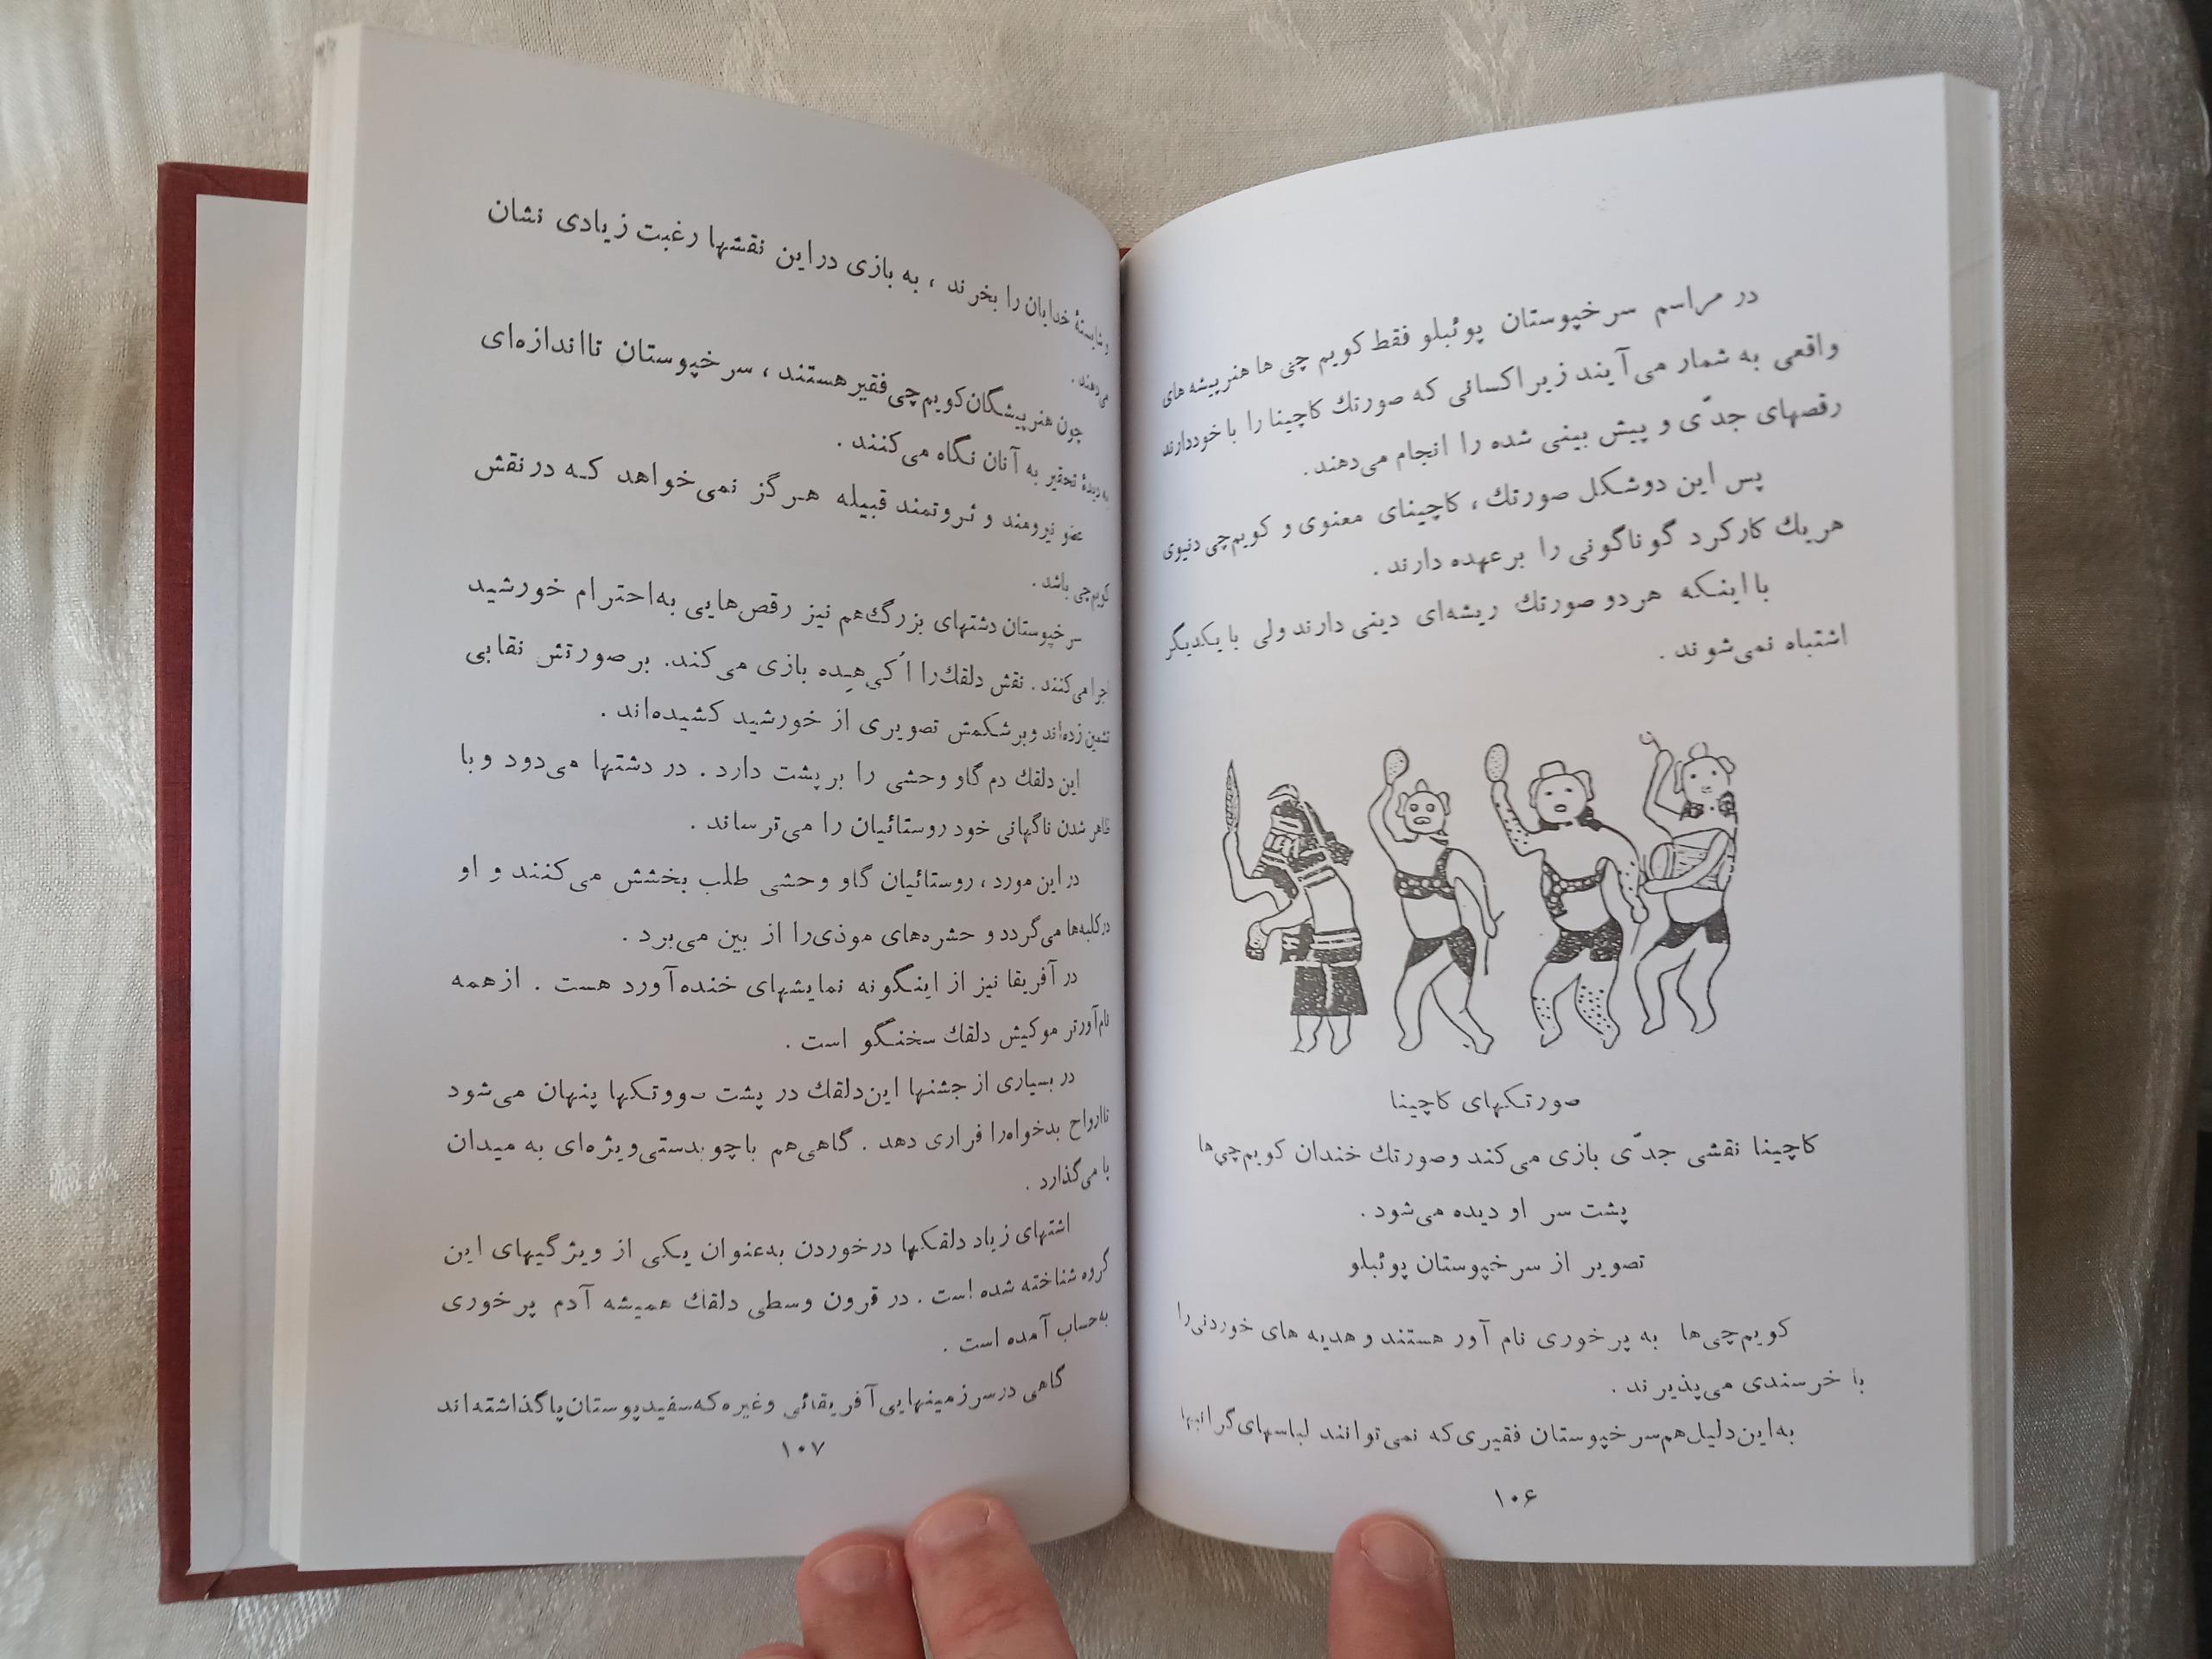 در مراسم سرخپوستان پوئبلو فقط کویم چی ها هنرپیشه های
واقعی به شمار می‌آیند زیرا کسانی که صورتك کاچینا را با خود دارند
رقصهای جدّی و پیش بینی شده را انجام می‌دهند.
پس این دو شکل صورتك، کاچینای معنوی و کویم‌چی دنیوی
هر یك کارکرد گوناگونی را برعهده دارند.
با اینکه هر دو صورتك ریشه‌ای دینی دارند ولی با یکدیگر
اشتباه نمی‌شوند.
صورتکهای کاچینا
کاچینا نقشی جدّی بازی می‌کند و صورتك خندان کویم‌چی‌ها
پشت سر او دیده می‌شود.
تصویر از سرخپوستان پوئبلو
کویم‌چی‌ها به پرخوری نام آور هستند و هدیه های خوردنی‌را
با خرسندی می‌پذیرند.
به‌این‌دلیل‌هم‌سرخپوستان فقیری‌که نمی‌توانند لباسهای‌گرانبها
۱۰۶
و شایستهٔ خدایان را بخرند، به بازی در این نقشها رغبت زیادی نشان
می‌دهند.
چون هنرپیشگان کویم‌چی فقیر هستند، سرخپوستان تااندازه‌ای
به دیدهٔ تحقیر به آنان نگاه می‌کنند.
عضو نیرومند و ثروتمند قبیله هرگز نمی‌خواهد که در نقش
کویم‌چی باشد.
سرخپوستان دشتهای بزرگ‌هم نیز رقص‌هایی به‌احترام خورشید
اجرا می‌کنند. نقش دلقك‌را اُکی‌هیده بازی می‌کند. بر صورتش نقابی
نشمین زده‌اند و برشکمش تصویری از خورشید کشیده‌اند.
این دلقك دم گاو وحشی را بر پشت دارد. در دشتها می‌دود و با
ظاهر شدن ناگهانی خود روستائیان را می‌ترساند.
در این مورد، روستائیان گاو وحشی طلب بخشش می‌کنند و او
در کلبه‌ها می‌گردد و حشره‌های موذی‌را از بین می‌برد.
در آفریقا نیز از اینگونه نمایشهای خنده‌آورد هست. از همه
نام‌آورتر موکیش دلقك سخنگو است.
در بسیاری از جشنها این‌دلقك در پشت صووتکها پنهان می‌شود
تا ارواح بدخواه‌را فراری دهد. گاهی‌هم با چوبدستی‌ویژه‌ای به میدان
پا می‌گذارد.
اشتهای زیاد دلقکها در خوردن به‌عنوان یکی از ویژگیهای این
گروه شناخته شده است. در قرون وسطی دلقك همیشه آدم پرخوری
به‌حساب آمده است.
گاهی در سرزمینهایی آفریقائی و غیره که سفیدپوستان پا گذاشته‌اند
۱۰۷